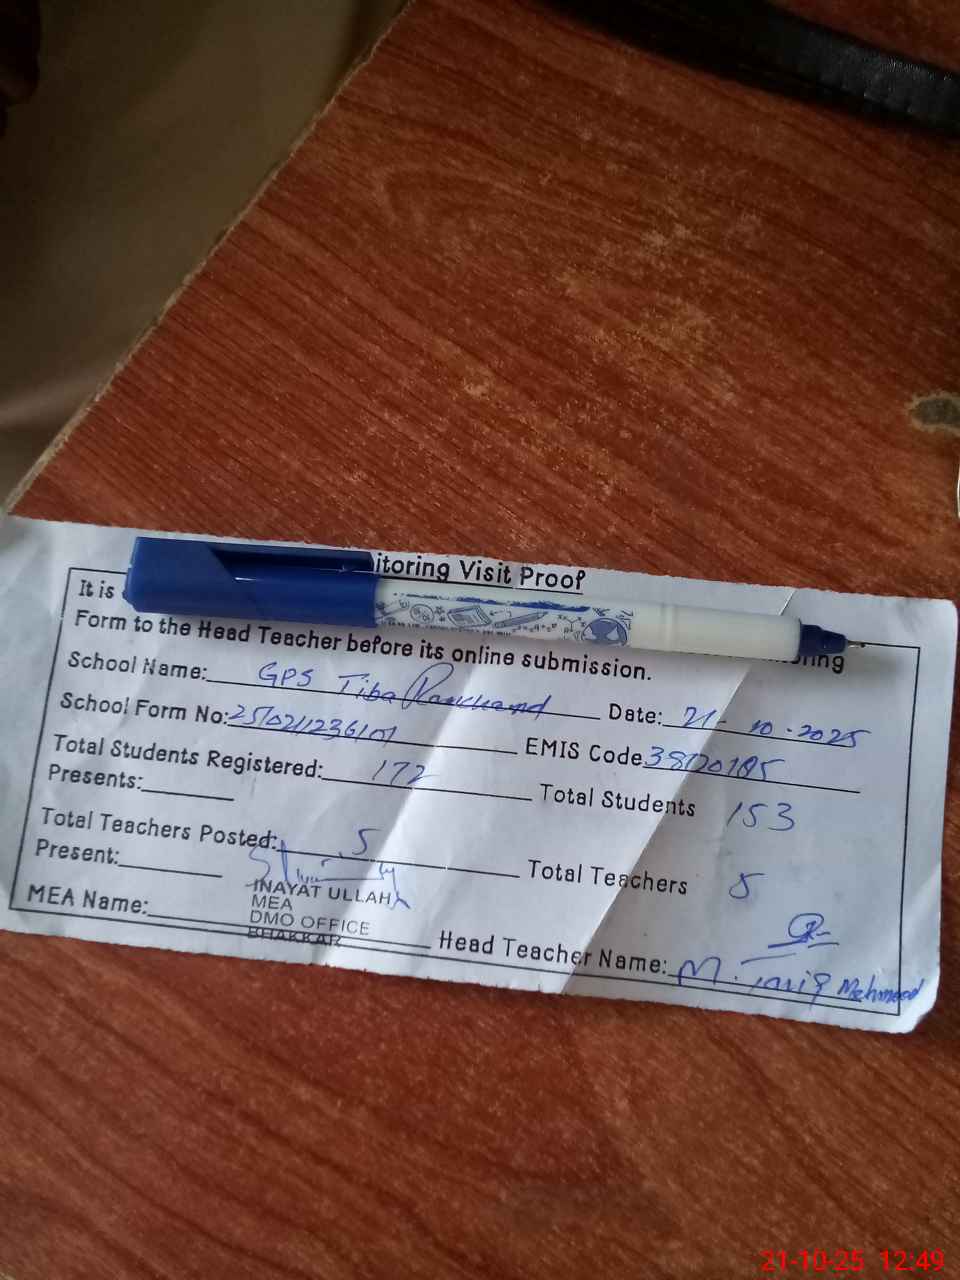 itoring Visit Proof
It is
oring
Form to the Head Teacher before its online submission.
School Name: GPS Tiba Date: 21-10-2025
School Form No: EMIS Code 38120185
Total Students Registered: 172 Total Students 153
Presents:
Total Teachers Posted: 5 Total Teachers 5
Present:
INAYAT ULLAH
MEA
DMO OFFICE
BHAKKAR
MEA Name: Head Teacher Name: M. Tariq Mehmood
21-10-25 12:49